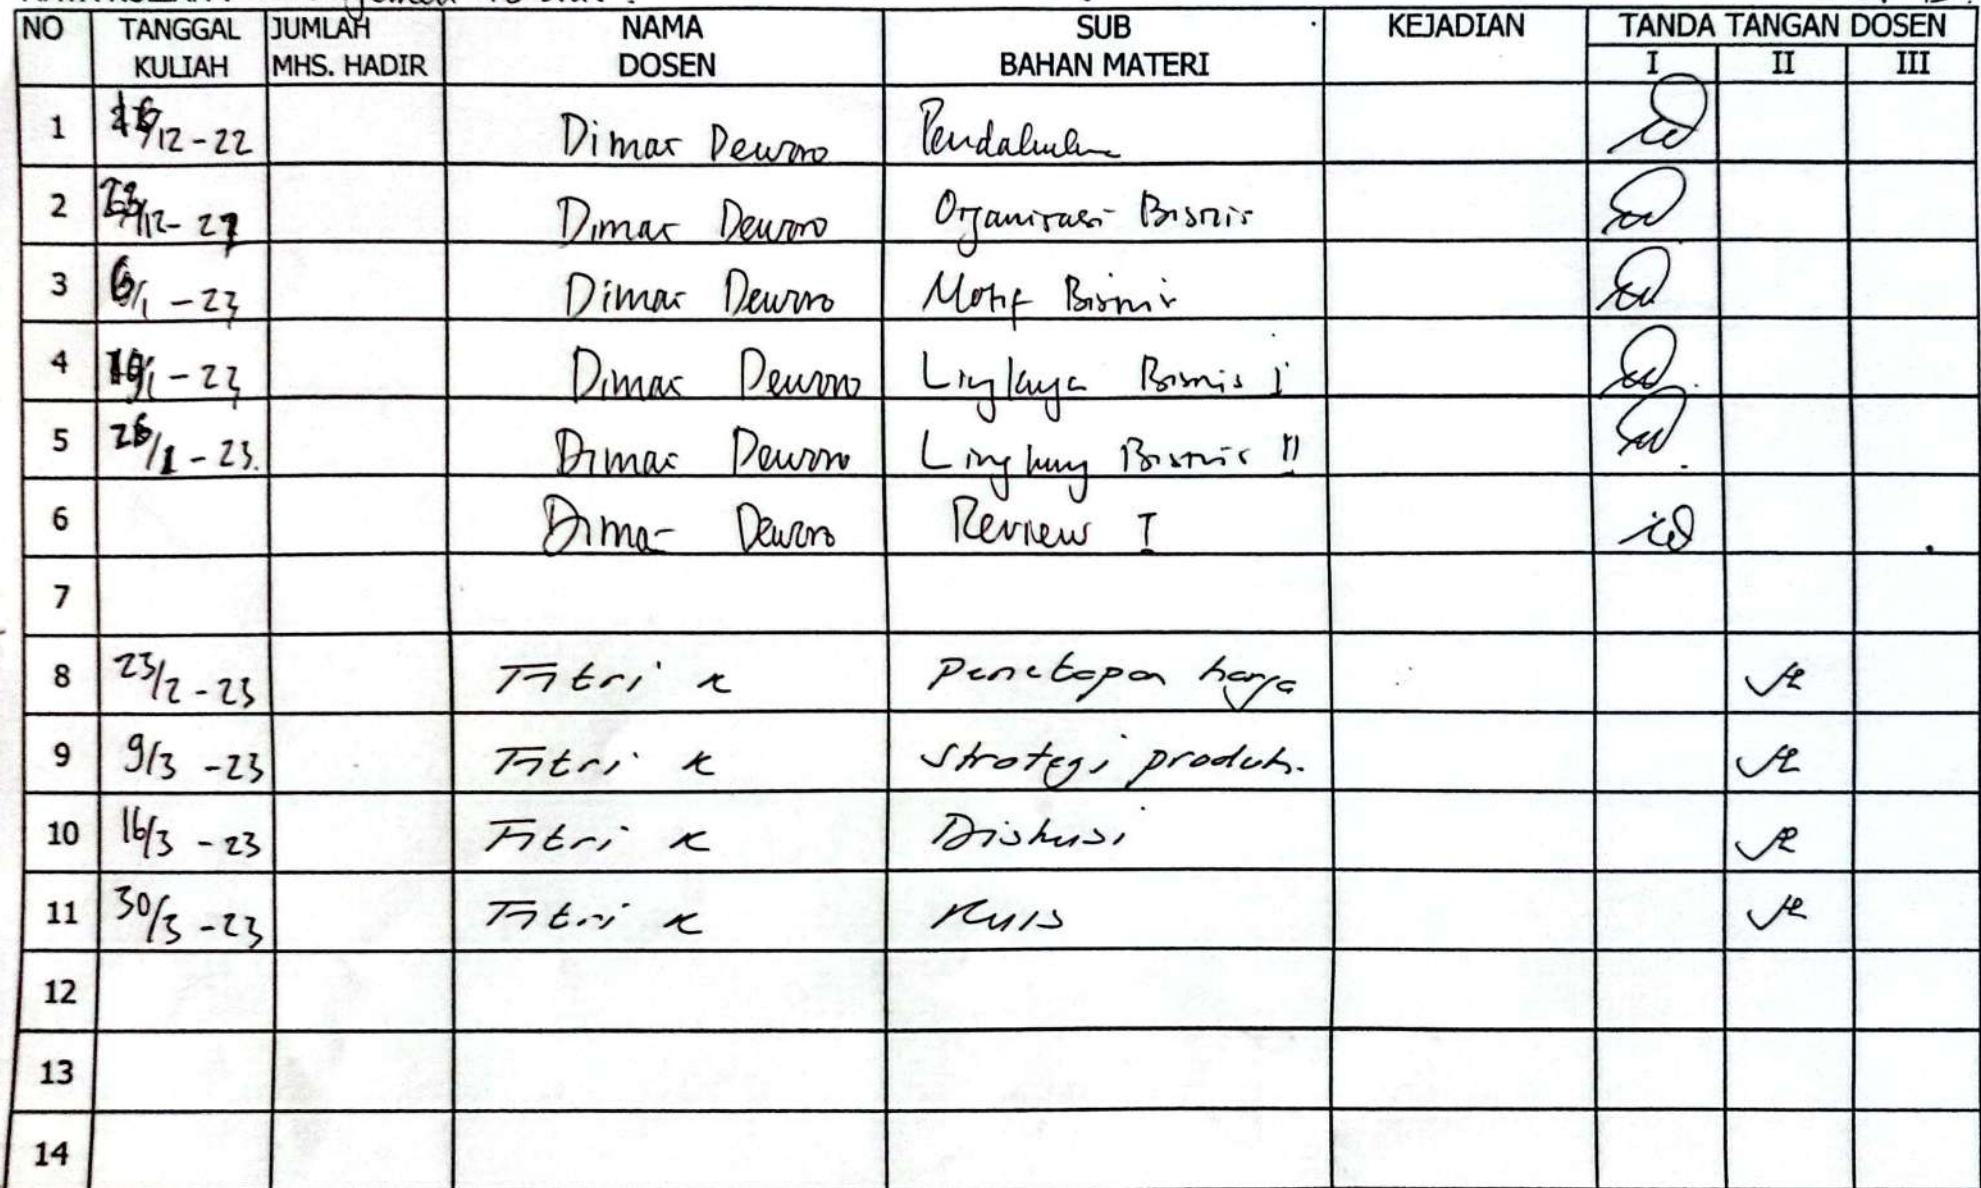 NO TANGGAL KULIAH JUMLAH MHS. HADIR NAMA DOSEN SUB BAHAN MATERI KEJADIAN TANDA TANGAN DOSEN
I II III
1 /12 - 22 Dimas Pendahulu
2 /12 - 22 Dimas Organisasi Bisnis
3 6/1 - 23 Dimas Motif Bisnis
4 /1 - 23 Dimas Bisnis I
5 26/1 - 23. Dimas Bisnis II
6 Dimas Review I
7
8 23/2 - 23 Fitri K Penetapan harga
9 9/3 - 23 Fitri K Strategi produk.
10 16/3 - 23 Fitri K Diskusi
11 30/3 - 23 Fitri K Kuis
12
13
14